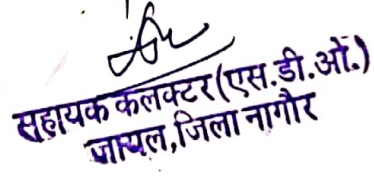 सहायक कलक्टर(एस.डी.ओ.)
जायल,जिला नागौर